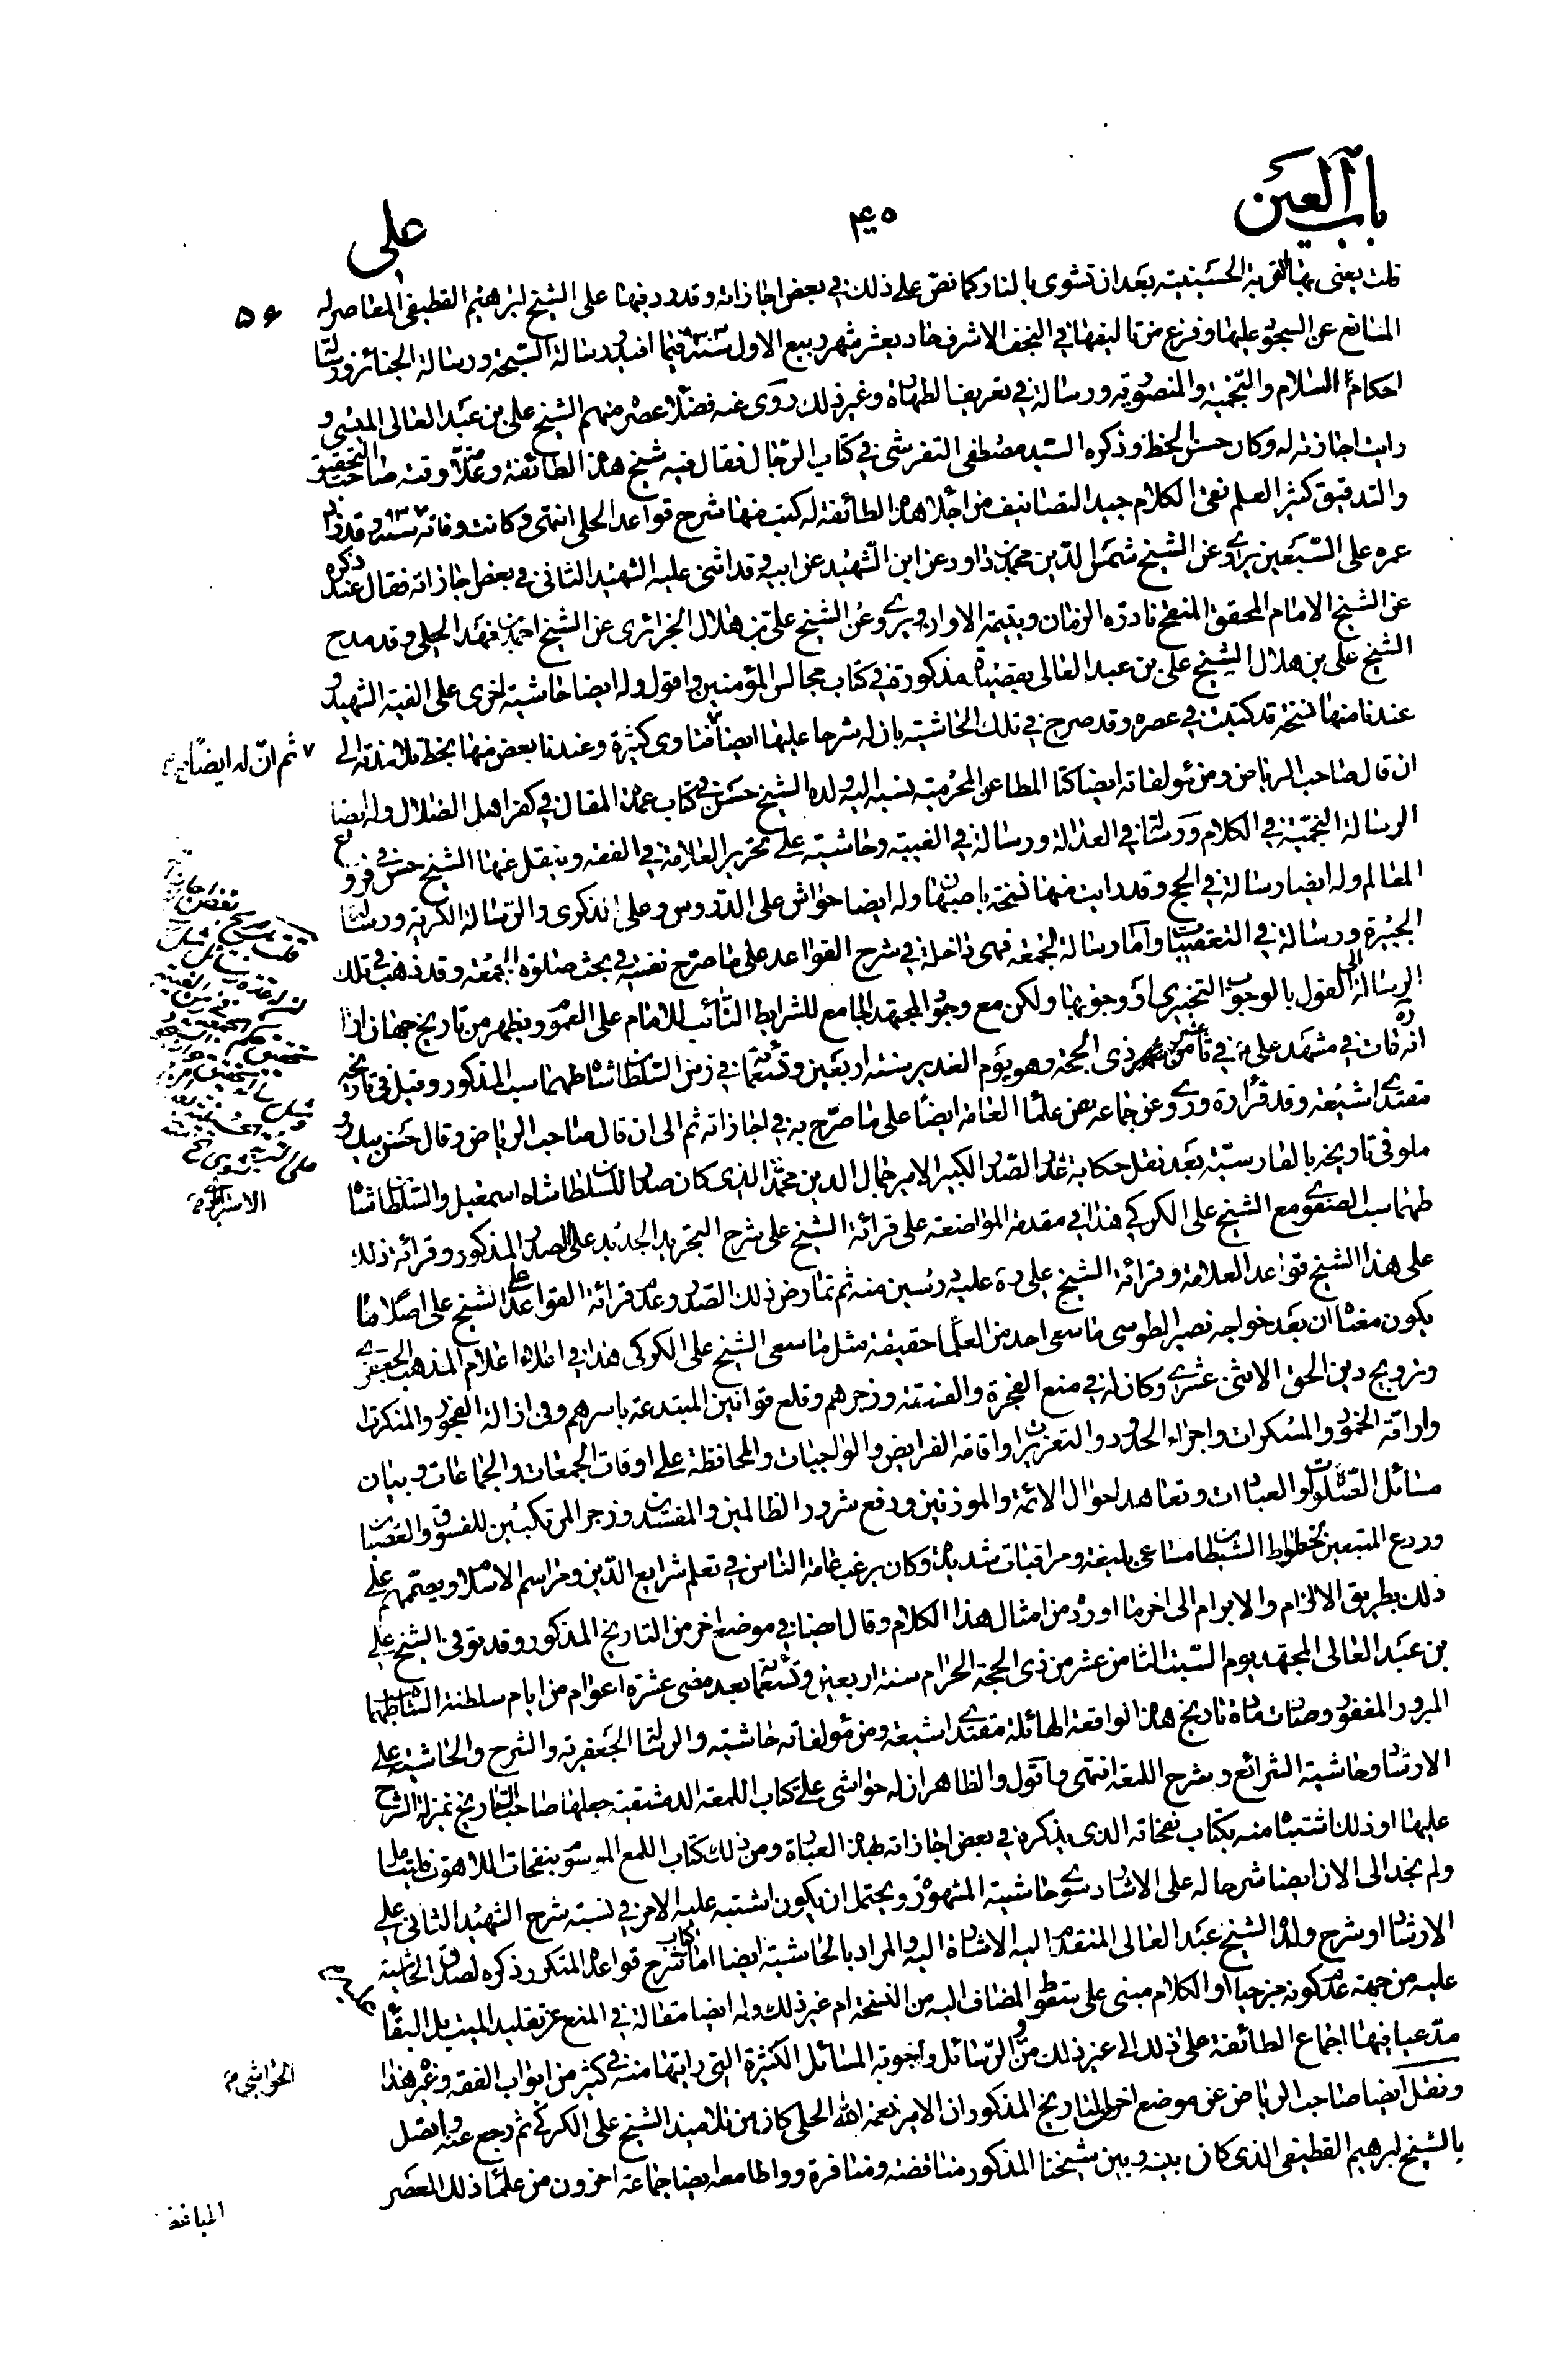 باب العين
۴۰۵
علی
۵۶
قلت يعنى بها التربة الحسينية بعد ان تشوى بالنار كما نص على ذلك فى بعض اجازاته وقد رد فيها على الشيخ ابرهيم القطيفى المعاصر له
المانع عن السجود عليها وفرغ من تاليفها فى النجف الاشرف حاديعشر شهر ربيع الاول سنة ٩٣٣ فيما افيد ورسالة السبحة ورسالة الجنائز ورسالة
احكام السلام والنجمية والمنصورية ورسالة فى تعريف الطهارة وغير ذلك روى عنه فضلاء عصره منهم الشيخ على بن عبد العالى الميسى و
رايت اجازته له وكان حسن الخط وذكره السيد مصطفى التفرشى فى كتاب الرجال فقال فيه شيخ هذه الطائفة وعلامة وقته صاحب التحقيق
والتدقيق كثير العلم نقى الكلام جيد التصانيف من اجلاء هذه الطائفة له كتب منها شرح قواعد الحلى انتهى وكانت وفاته سنة ٩٣٧ وقد زاد
عمره على السبعين يروى عن الشيخ شمس الدين محمد بن داود عن ابن الشهيد عن ابيه وقد اثنى عليه الشهيد الثانى فى بعض اجازاته فقال عند ذكره
عن الشيخ الامام المحقق المنقح نادرة الزمان ويتيمة الاوان ويروى عن الشيخ على بن هلال الجزائرى عن الشيخ احمد بن فهد الحلى وقد مدح
الشيخ على بن هلال الشيخ على بن عبد العالى بقصيدة مذكورة فى كتاب مجالس المؤمنين واقول وله ايضا حاشية اخرى على الفية الشهيد و
عندنا منها نسخة قد كتبت فى عصره وقد صرح فى تلك الحاشية بان له شرحا عليها ايضا ٧ فتاوى كثيرة وعندنا بعض منها بخط تلامذته الى
٧ ثم انّ له ايضًا
ان قال صاحب الرياض ومن مؤلفاته ايضا كتاب المطاعن المحرمية نسبه اليه ولده الشيخ حسن فى كتاب عمدة المقال فى كفر اهل الضلال وله ايضا
الرسالة النجمية فى الكلام ورسالة فى العدالة ورسالة فى الغيبة وحاشية على تحرير العلامة فى الفقه وينقل عنها الشيخ حسن فى فروع
المعالم وله ايضا رسالة فى الحج وقد رايت منها نسخة باصبهان وله ايضا حواش على الدروس وعلى الذكرى والرسالة الكرية ورسالة
الجبيرة ورسالة فى التعقيبات واما رسالة الجمعة فهى داخلة فى شرح القواعد على ما صرح نفسه فى بحث صلوة الجمعة وقد ذهب فى تلك
الرسالة الى القول بالوجوب التخييرى او وجوبها ولكن مع وجود المجتهد الجامع للشرايط النائب للامام على العموم ويظهر من تاريخ جهان ارا
انه ره مات فى مشهد على ع فى ثامن عشر ذى الحجة وهو يوم الغدير سنة اربعين وتسعمائة فى زمن السلطان شاه طهماسب المذكور وقيل فى تاريخه
مقتداى شيعه وقد قرأ ره وروى عن جماعة من علماء العامة ايضًا على ما صرح به فى اجازاته ثم الى ان قال صاحب الرياض وقال حسن بيك رو
ملو فى تاريخه بالفارسية بعد نقل حكاية غدر الصدر الكبير الامير جمال الدين محمد الذى كان صدرا للسلطان شاه اسمعيل والسلطان شاه
طهماسب الصفوى مع الشيخ على الكركى هذا فى مقدمة المواضعة على قرائة الشيخ على شرح التجريد الجديد على الصدر المذكور وقرائة ذلك
على هذا الشيخ قواعد العلامة وقرائة الشيخ على ره عليه درسين منه ثم تمارض ذلك الصدر وعدم قرائة القواعد على الشيخ على اصلا ما
يكون معناه ان بعد خواجه نصير الطوسى ما سعى احد من العلماء حقيقة مثل ما سعى الشيخ على الكركى هذا فى اعلاء اعلام المذهب الجعفرى
وترويج دين الحق الاثنى عشرى وكان له فى منع الفجرة والفسقة وزجرهم وقلع قوانين المبتدعة باسرهم وفى ازالة الفجور والمنكرات
واراقة الخمور والمسكرات واجراء الحدود والتعزيرات واقامة الفرايض والواجبات والمحافظة على اوقات الجمعات والجماعات وبيان
مسائل الصلوات والعبادات وتعاهد احوال الائمة والموذنين ودفع شرور الظالمين والمفسدين وزجر المرتكبين للفسوق والعصيان
وردع المتبعين لخطوات الشيطان مساعى بليغة ومراقبات شديدة وكان يرغب عامة الناس فى تعلم شرايع الدين ومراسم الاسلام ويحثهم على
ذلك بطريق الالزام والابرام الى اخر ما اورده من امثال هذا الكلام وقال ايضا فى موضع اخر من التاريخ المذكور وقد توفى الشيخ على
بن عبد العالى المجتهد يوم السبت الثامن عشر من ذى الحجة الحرام سنة اربعين وتسعمائة بعد مضى عشرة اعوام من ايام سلطنة الشاه طهماسب
المبرور المغفور وصارت مادة تاريخ هذه الواقعة الهائلة مقتداى شيعه ومن مؤلفاته حاشية والرسالة الجعفرية والشرح والحاشية على
الارشاد وحاشية الشرائع وشرح اللمعة انتهى واقول والظاهر ان له حواشى على كتاب اللمعة الدمشقية جعلها صاحب التاريخ بمنزلة الشرح
عليها او ذلك اشتباه منه بكتاب نفحاته الذى يذكره فى بعض اجازاته بهذه العبارة ومن ذلك كتاب اللمع الموسوم بنفحات اللاهوت فليتامل
ولم نجد الى الان ايضا شرحا له على الارشاد سوى حاشيته المشهورة ويحتمل ان يكون اشتبه عليه الامر فى نسبة شرح الشهيد الثانى على
الارشاد او شرح ولده الشيخ عبد العالى المتقدم اليه الاشارة اليه والمراد بالحاشية ايضا اما كتاب شرح قواعده المتكرر ذكره لصدق الحاشية
عليه من جهة عدم كونه مزجيا او الكلام مبنى على سقط المضاف اليه من النسخة ام غير ذلك وله ايضا مقالة فى المنع عن تقليد الميت بل البقاء
مدعيا فيها اجماع الطائفة على ذلك الى غير ذلك من الرسائل واجوبة المسائل الكثيرة التى رايتها منه فى كثير من ابواب الفقه وغير هذا
الحواشى
ونقل ايضا صاحب الرياض عن موضع اخر من التاريخ المذكور ان الامير نعمة الله الحلى كان من تلاميذ الشيخ على الكركى ثم رجع عنه واتصل
بالشيخ ابرهيم القطيفى الذى كان بينه وبين شيخنا المذكور مناقضة ومنافرة وواطا معه ايضا جماعة اخرون من علماء ذلك العصر